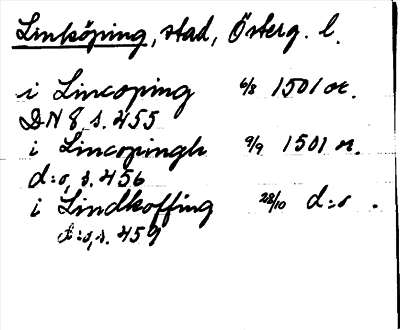 Linköping, stad, Österg. l.
i Lincoping 6/8 1501 or.
DN 8, s. 455
i Lincopingh 9/9 1501 or.
d:o, s. 456
i Lindkoffing 28/10 d:o .
d:o, s. 459